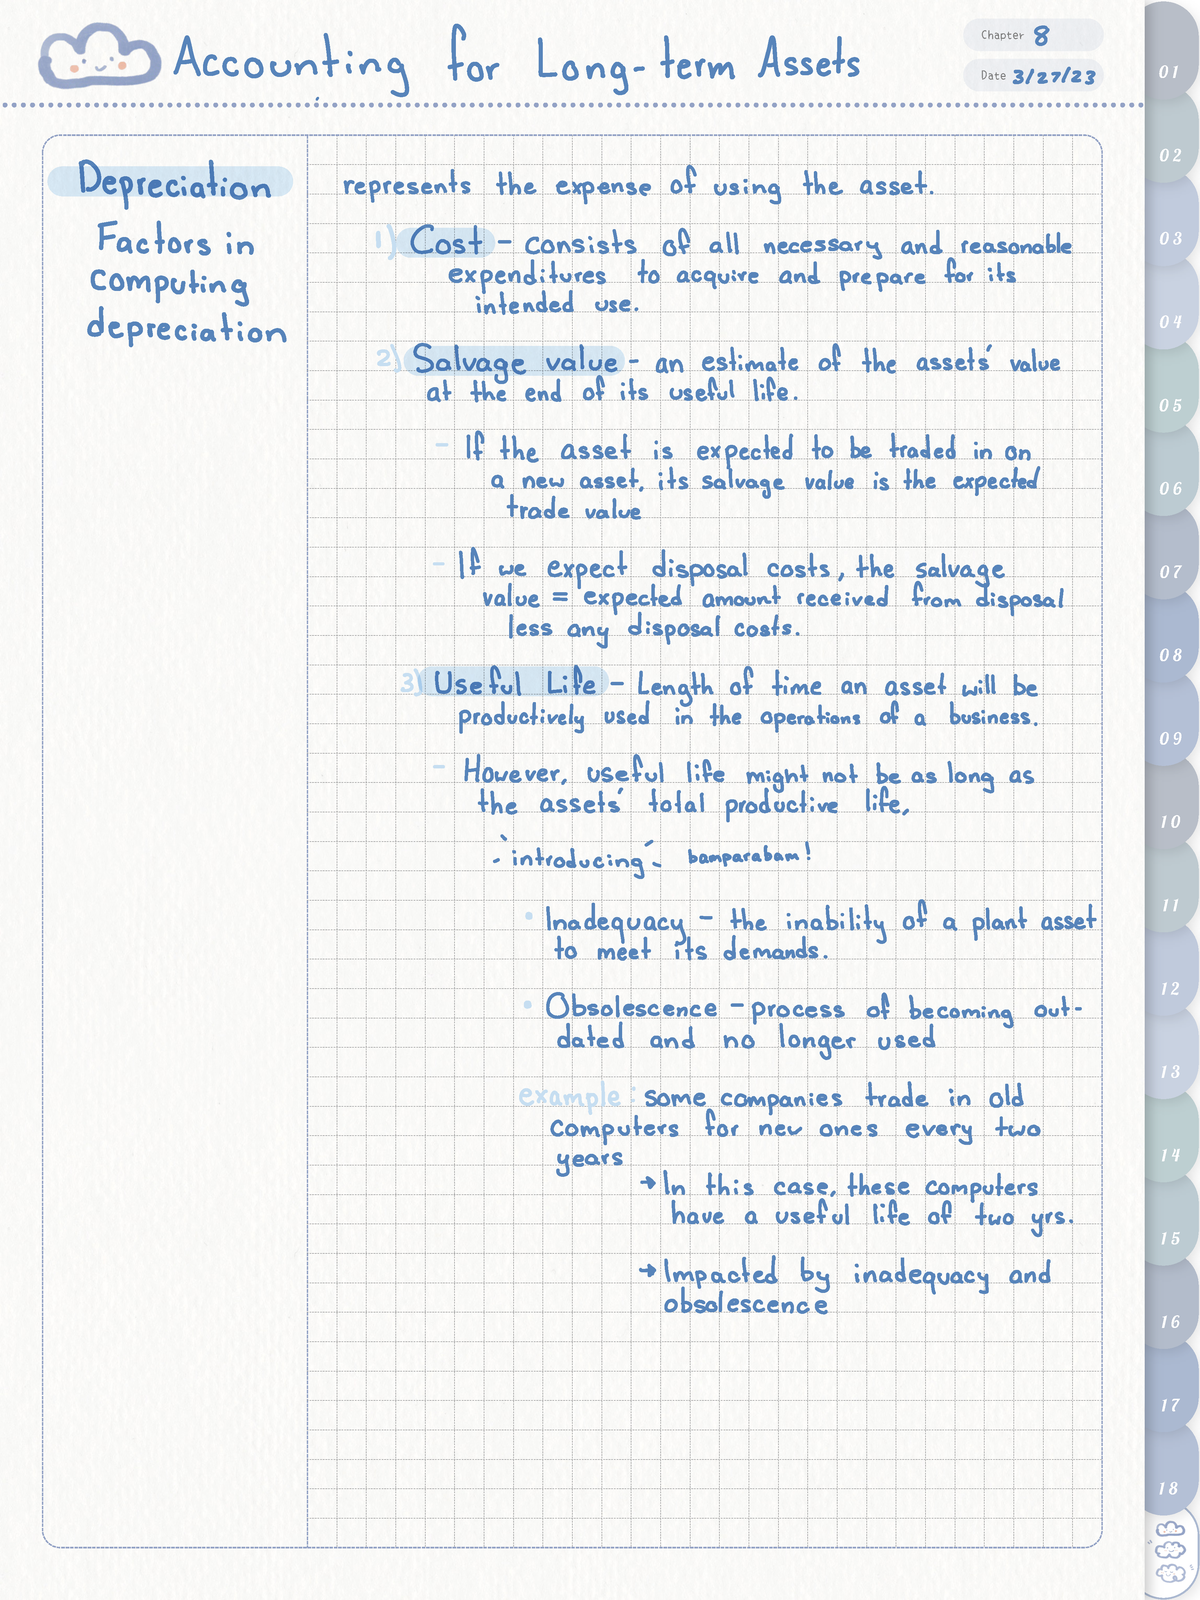 Accounting for Long-term Assets
Chapter 8
Date 3/27/23
Depreciation
Factors in
computing
depreciation
represents the expense of using the asset.
1) Cost - consists of all necessary and reasonable
expenditures to acquire and prepare for its
intended use.
2) Salvage value - an estimate of the assets' value
at the end of its useful life.
- If the asset is expected to be traded in on
a new asset, its salvage value is the expected
trade value
- If we expect disposal costs, the salvage
value = expected amount received from disposal
less any disposal costs.
3) Useful Life - Length of time an asset will be
productively used in the operations of a business.
- However, useful life might not be as long as
the assets' total productive life,
-`introducing´- bamparabam!
• Inadequacy - the inability of a plant asset
to meet its demands.
• Obsolescence - process of becoming out-
dated and no longer used
example: some companies trade in old
computers for new ones every two
years
→ In this case, these computers
have a useful life of two yrs.
→ Impacted by inadequacy and
obsolescence
01
02
03
04
05
06
07
08
09
10
11
12
13
14
15
16
17
18